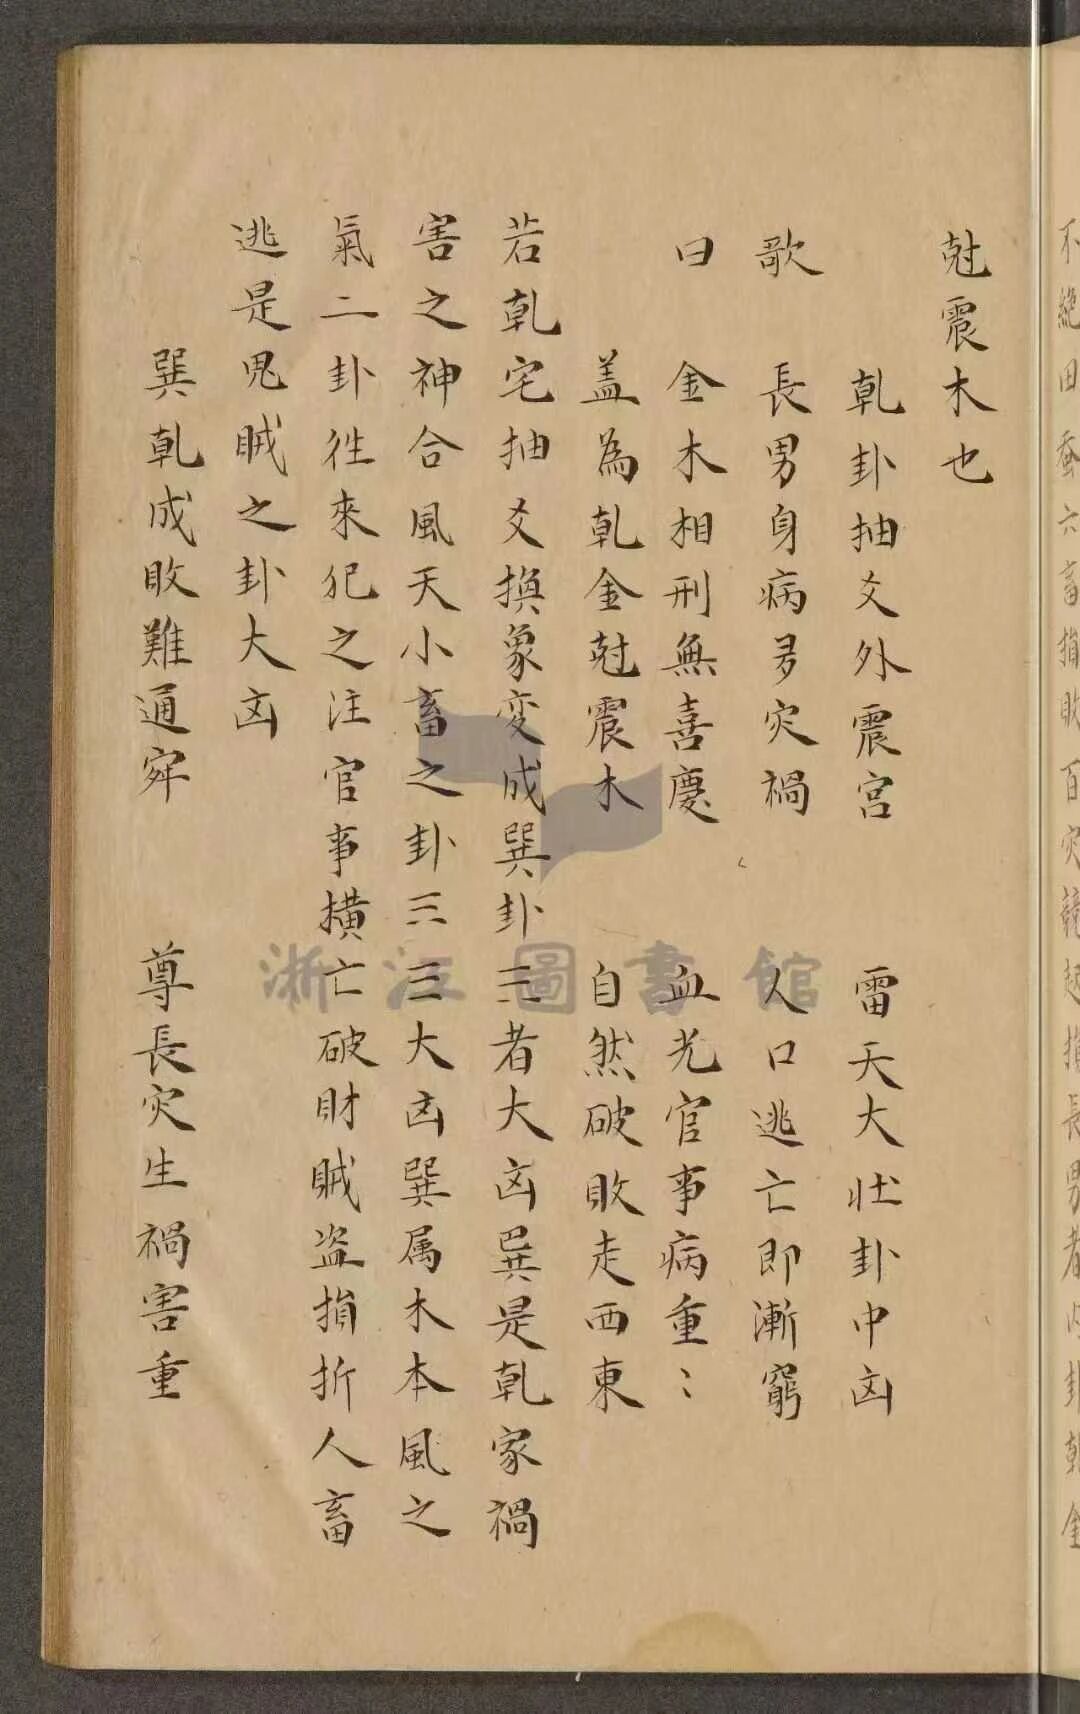 不絶田蚕六畜損敗百灾競起損長男者内卦乾金
尅震木也
乾卦抽爻外震宫 雷天大壮卦中凶
歌 長男身病多灾禍 人口逃亡即漸窮
曰 金木相刑無喜慶 血光官事病重〻
盖為乾金尅震木 自然破敗走西東
若乾宅抽爻換象变成巽卦三者大凶巽是乾家禍
害之神合風天小畜之卦三三大凶巽属木本風之
氣二卦徃來犯之注官事橫亡破財賊盗損折人畜
逃是鬼賊之卦大凶
巽乾成敗難通 尊長灾生禍害重
浙江圖書館